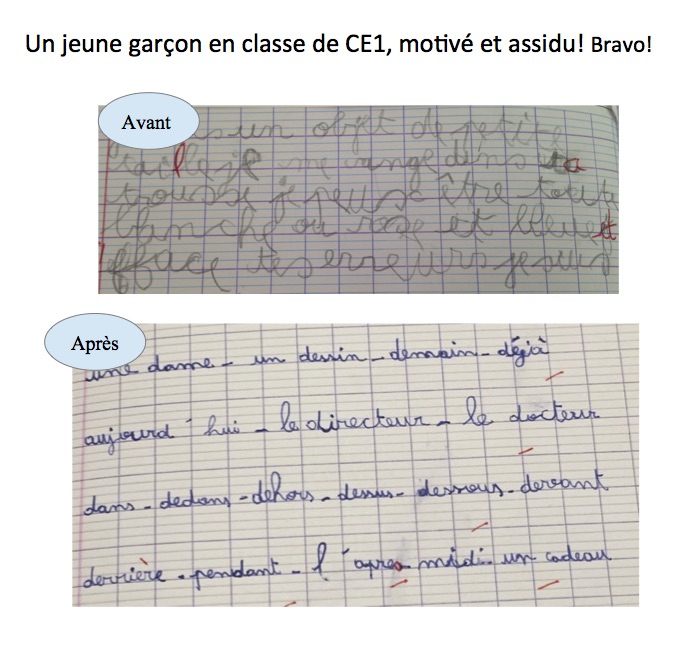 Un jeune garçon en classe de CE1, motivé et assidu! Bravo!
Avant
un objet de petite
taille je me range dans ta
trousse je peus être toute
blanche ou rose et bleue
efface tes erreurs je suis
Après
une dame - un dessin - demain - déjà
aujourd'hui - le directeur - le docteur
dans - dedans - dehors - dessus - dessous - devant
derrière - pendant - l'après midi - un cadeau